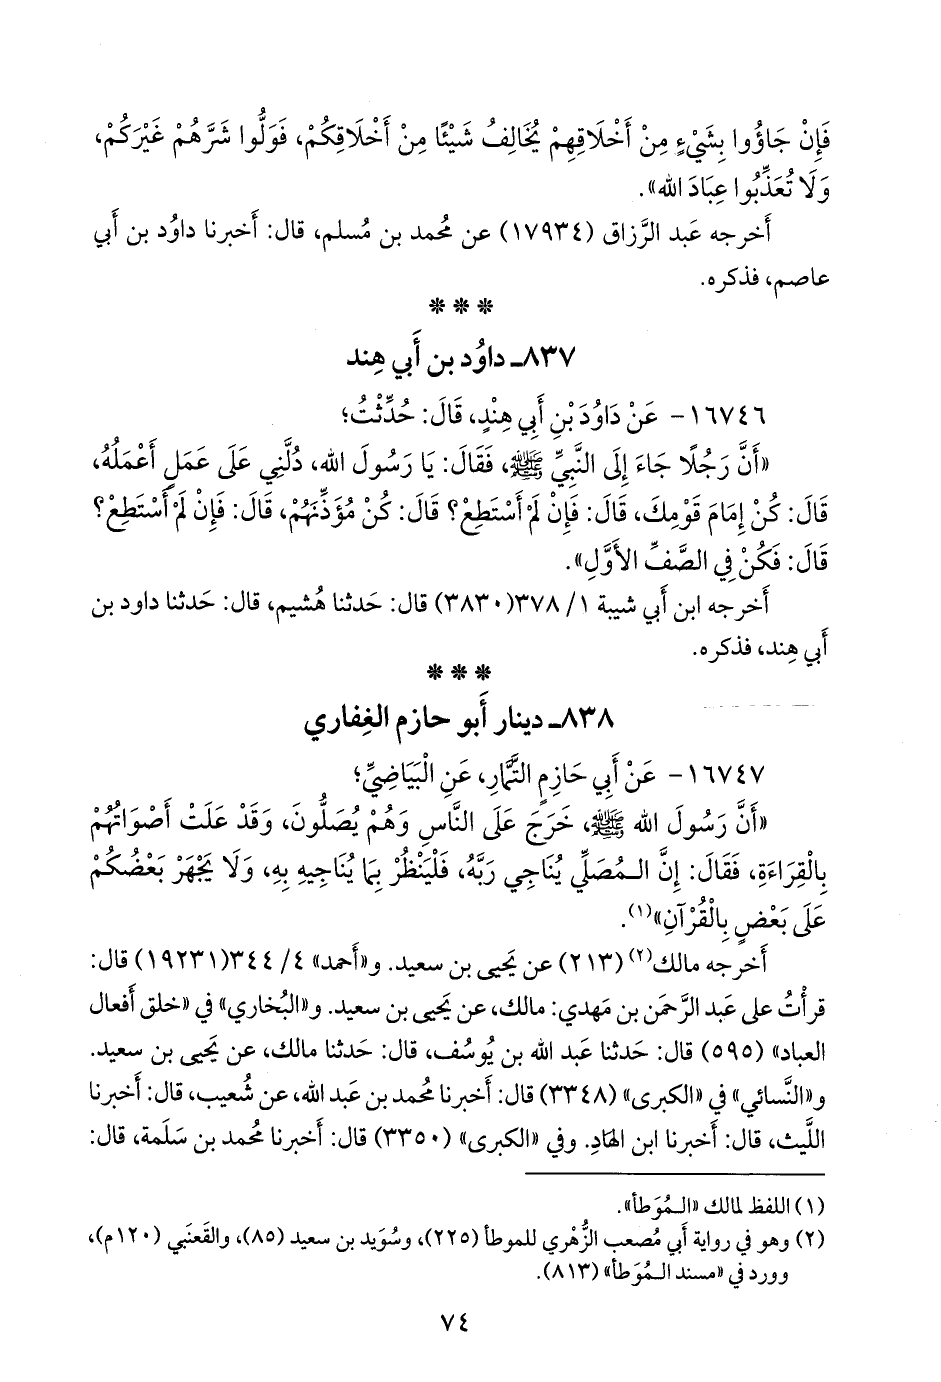 فَإِنْ جَاؤُوا بِشَيْءٍ مِنْ أَخْلَاقِهِمْ يُخَالِفُ شَيْئًا مِنْ أَخْلَاقِكُمْ، فَوَلُّوا شَرَّهُمْ غَيْرَكُمْ،
وَلَا تُعَذِّبُوا عِبَادَ الله».
أَخرجه عَبد الرَّزاق (١٧٩٣٤) عن مُحمد بن مُسلم، قال: أَخبرنا داوُد بن أَبي
عاصم، فذكره.
***
٨٣٧ـ داوُد بن أَبي هِند
١٦٧٤٦- عَنْ دَاوُدَ بْنِ أَبِي هِنْدٍ، قَالَ: حُدِّثْتُ؛
«أَنَّ رَجُلًا جَاءَ إِلَى النَّبِيِّ ﷺ، فَقَالَ: يَا رَسُولَ الله، دُلَّنِي عَلَى عَمَلٍ أَعْمَلُهُ،
قَالَ: كُنْ إِمَامَ قَوْمِكَ، قَالَ: فَإِنْ لَمْ أَسْتَطِعْ؟ قَالَ: كُنْ مُؤَذِّنَهُمْ، قَالَ: فَإِنْ لَمْ أَسْتَطِعْ؟
قَالَ: فَكُنْ فِي الصَّفِّ الأَوَّلِ».
أَخرجه ابن أَبي شيبة ١/ ٣٧٨(٣٨٣٠) قال: حَدثنا هُشيم، قال: حَدثنا داود بن
أَبي هِند، فذكره.
***
٨٣٨ـ دينار أَبو حازم الغِفاري
١٦٧٤٧- عَنْ أَبِي حَازِمٍ التَّمَّارِ، عَنِ الْبَيَاضِيِّ؛
«أَنَّ رَسُولَ الله ﷺ، خَرَجَ عَلَى النَّاسِ وَهُمْ يُصَلُّونَ، وَقَدْ عَلَتْ أَصْوَاتُهُمْ
بِالْقِرَاءَةِ، فَقَالَ: إِنَّ الـمُصَلِّي يُنَاجِي رَبَّهُ، فَلْيَنْظُرْ بِمَا يُنَاجِيهِ بِهِ، وَلَا يَجْهَرْ بَعْضُكُمْ
عَلَى بَعْضٍ بِالْقُرْآنِ»(١).
أَخرجه مالك(٢) (٢١٣) عن يَحيى بن سعيد. و«أَحمد» ٤/ ٣٤٤(١٩٢٣١) قال:
قرأْتُ على عَبد الرَّحمَن بن مَهدي: مالك، عن يَحيى بن سعيد. و«البُخاري» في «خلق أَفعال
العباد» (٥٩٥) قال: حَدثنا عَبد الله بن يُوسُف، قال: حَدثنا مالك، عن يَحيى بن سعيد.
و«النَّسائي» في «الكبرى» (٣٣٤٨) قال: أَخبرنا مُحمد بن عَبد الله، عن شُعيب، قال: أَخبرنا
اللَّيث، قال: أَخبرنا ابن الهَادِ. وفي «الكبرى» (٣٣٥٠) قال: أَخبرنا مُحمد بن سَلَمة، قال:
(١) اللفظ لمالك «الـمُوَطأ».
(٢) وهو في رواية أَبي مُصعب الزُّهْري للموطأ (٢٢٥)، وسُوَيد بن سعيد (٨٥)، والقَعنَبي (١٢٠م)،
وورد في «مسند الـمُوَطأ» (٨١٣).
٧٤